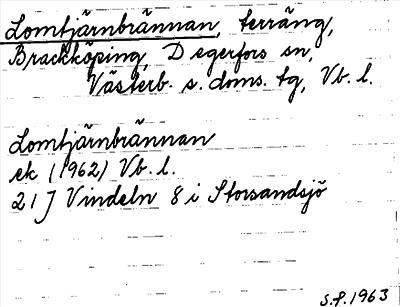 Lomtjärnbrännan, terräng,
Brackköping, Degerfors sn,
Västerb. s. doms. tg, Vb. l.
Lomtjärnbrännan
ek (1962) Vb. l.
21 J Vindeln 8 i Storsandsjö
S.P. 1963